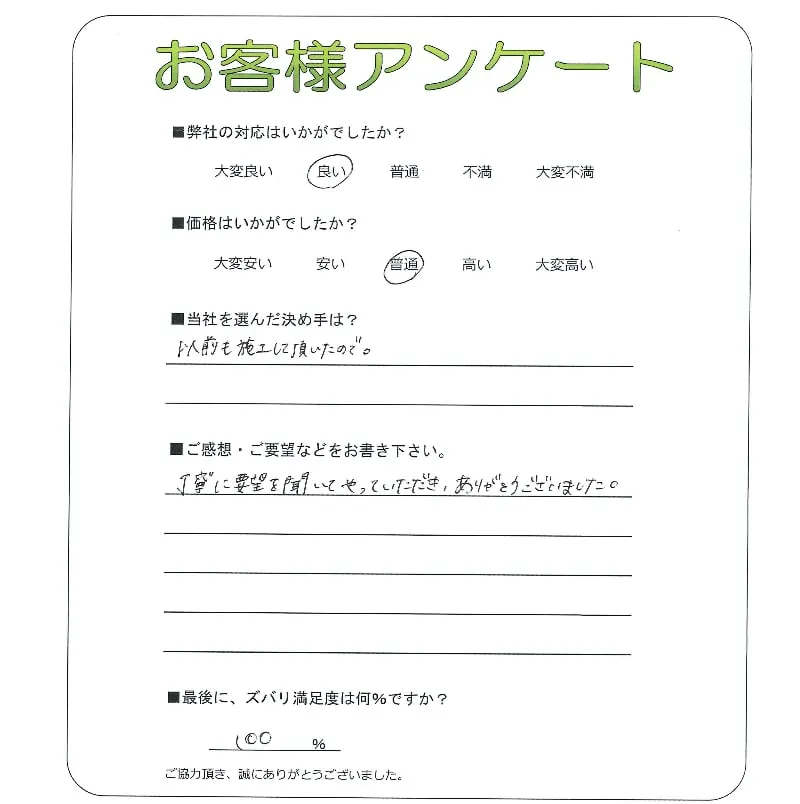 お客様アンケート
■弊社の対応はいかがでしたか？
大変良い 良い 普通 不満 大変不満
■価格はいかがでしたか？
大変安い 安い 普通 高い 大変高い
■当社を選んだ決め手は？
以前も施工して頂いたので。
■ご感想・ご要望などをお書き下さい。
丁寧に要望を聞いてやっていただき、ありがとうございました。
■最後に、ズバリ満足度は何%ですか？
100 %
ご協力頂き、誠にありがとうございました。